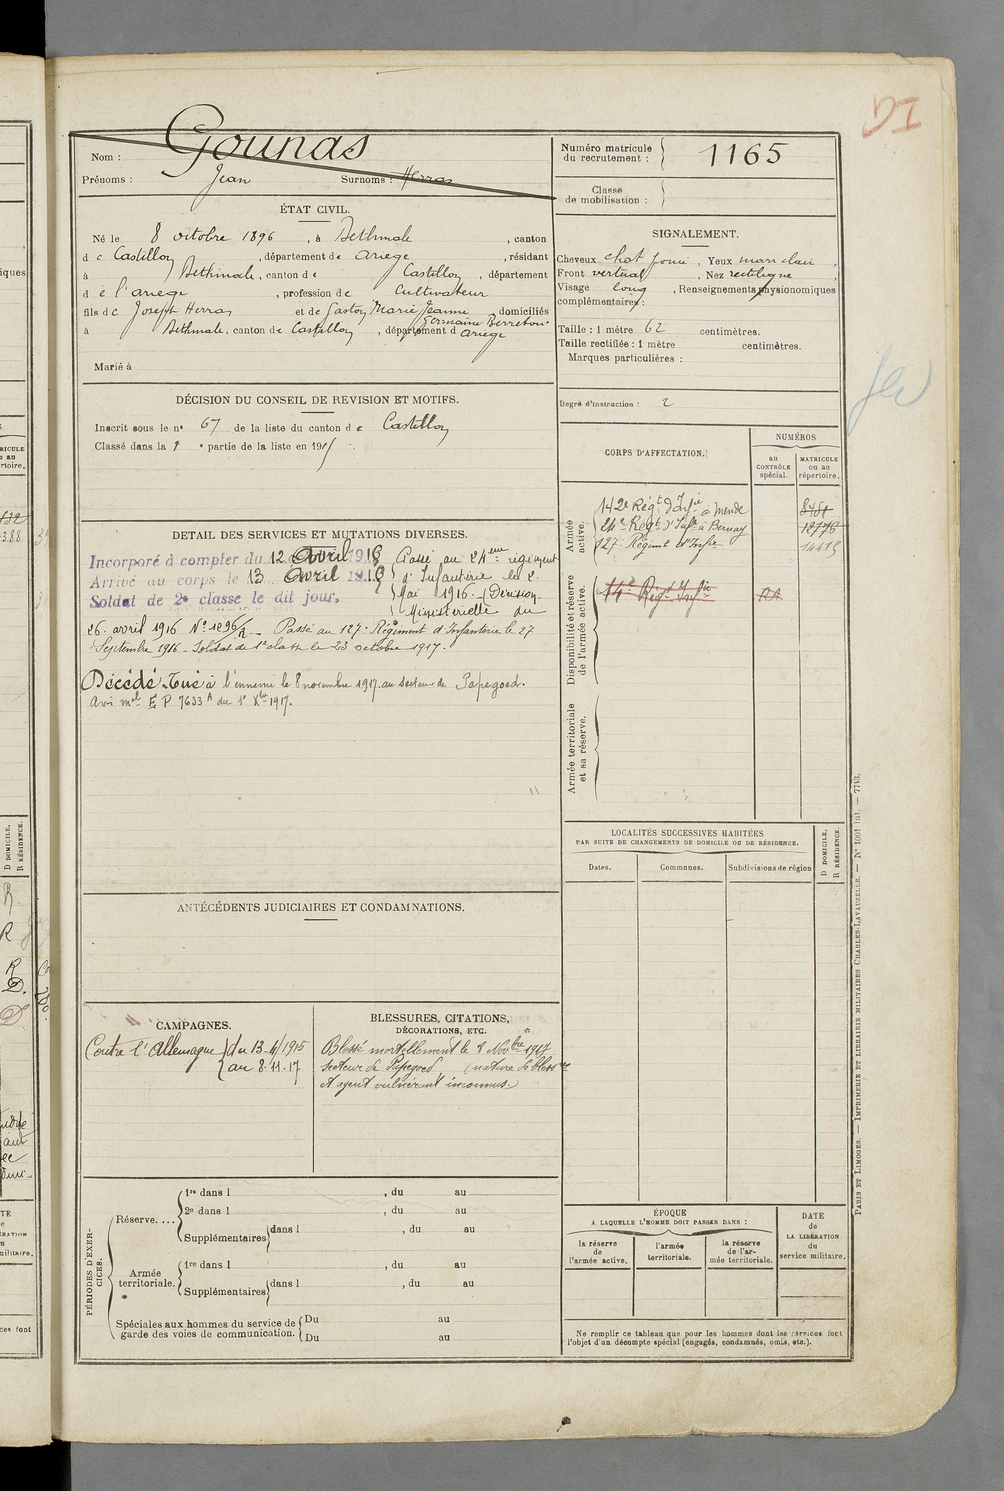 DI
Nom : Gounas
Prénoms : Jean Surnoms : Herras
Numéro matricule du recrutement : 1165
Classe de mobilisation :
ÉTAT CIVIL.
Né le 8 octobre 1896, à Bethmale, canton
de Castillon, département de Ariege, résidant
à Bethmale, canton de Castillon, département
de l'ariege, profession de Cultivateur
fils de Joseph Herras et de Gaston Marie Jeanne Germaine, domiciliés
à Bethmale, canton de Castillon, département d ariege
Marié à
SIGNALEMENT.
Cheveux chat foncé, Yeux marr clair,
Front vertical, Nez rectiligne,
Visage long, Renseignements physionomiques
complémentaires :
Taille : 1 mètre 62 centimètres.
Taille rectifiée : 1 mètre centimètres.
Marques particulières :
Degré d'instruction : 2
DÉCISION DU CONSEIL DE REVISION ET MOTIFS.
Inscrit sous le nº 67 de la liste du canton de Castillon
Classé dans la 1e partie de la liste en 1915
CORPS D'AFFECTATION.
NUMÉROS
AU CONTRÔLE spécial.
MATRICULE ou au répertoire.
Armée active.
142e Régt d'Infie à Mende
24e Régt d'Infie à Bernay 12776
127e Régiment d'Infie 14415
Disponibilité et réserve de l'armée active.
14e Régt Infie
Armée territoriale et sa réserve.
DETAIL DES SERVICES ET MUTATIONS DIVERSES.
Incorporé à compter du 12 Avril 1916
Arrivé au corps le 13 Avril 1916
Soldat de 2e classe le dit jour.
Passé au 24eme régiment
d'Infanterie le 2
Mai 1916. (Décision
Ministerielle du
26 avril 1916 Nº 1296/2. Passé au 127e Régiment d'Infanterie le 27
Septembre 1916. Soldat de 1e classe le 23 octobre 1917.
Décédé Tué à l'ennemi le 8 novembre 1917 au secteur de Papegoed.
Avis mel E P 7633 A du 1e Xbre 1917.
LOCALITÉS SUCCESSIVES HABITÉES
PAR SUITE DE CHANGEMENTS DE DOMICILE OU DE RÉSIDENCE.
Dates. Communes. Subdivisions de région
D DOMICILE. R RÉSIDENCE.
ANTÉCÉDENTS JUDICIAIRES ET CONDAMNATIONS.
CAMPAGNES.
Contre l'Allemagne du 13-4-1915
au 8-11-17
BLESSURES, CITATIONS,
DÉCORATIONS, ETC.
Blessé mortellement le 8 Novbre 1917
secteur de Papegoed (nature de blessure
et agent vulnérant inconnus)
PÉRIODES D'EXERCICES.
Réserve....
1re dans l , du au
2e dans l , du au
Supplémentaires dans l , du au
Armée territoriale.
1re dans l , du au
Supplémentaires dans l , du au
Spéciales aux hommes du service de garde des voies de communication.
Du au
Du au
ÉPOQUE
A LAQUELLE L'HOMME DOIT PASSER DANS :
la réserve de l'armée active.
l'armée territoriale.
la réserve de l'armée territoriale.
DATE de LA LIBÉRATION du service militaire.
Ne remplir ce tableau que pour les hommes dont les services font
l'objet d'un décompte spécial (engagés, condamnés, omis, etc.).
PARIS ET LIMOGES. — IMPRIMERIE ET LIBRAIRIE MILITAIRES CHARLES-LAVAUZELLE. — Nº 1001 int. — 7743.